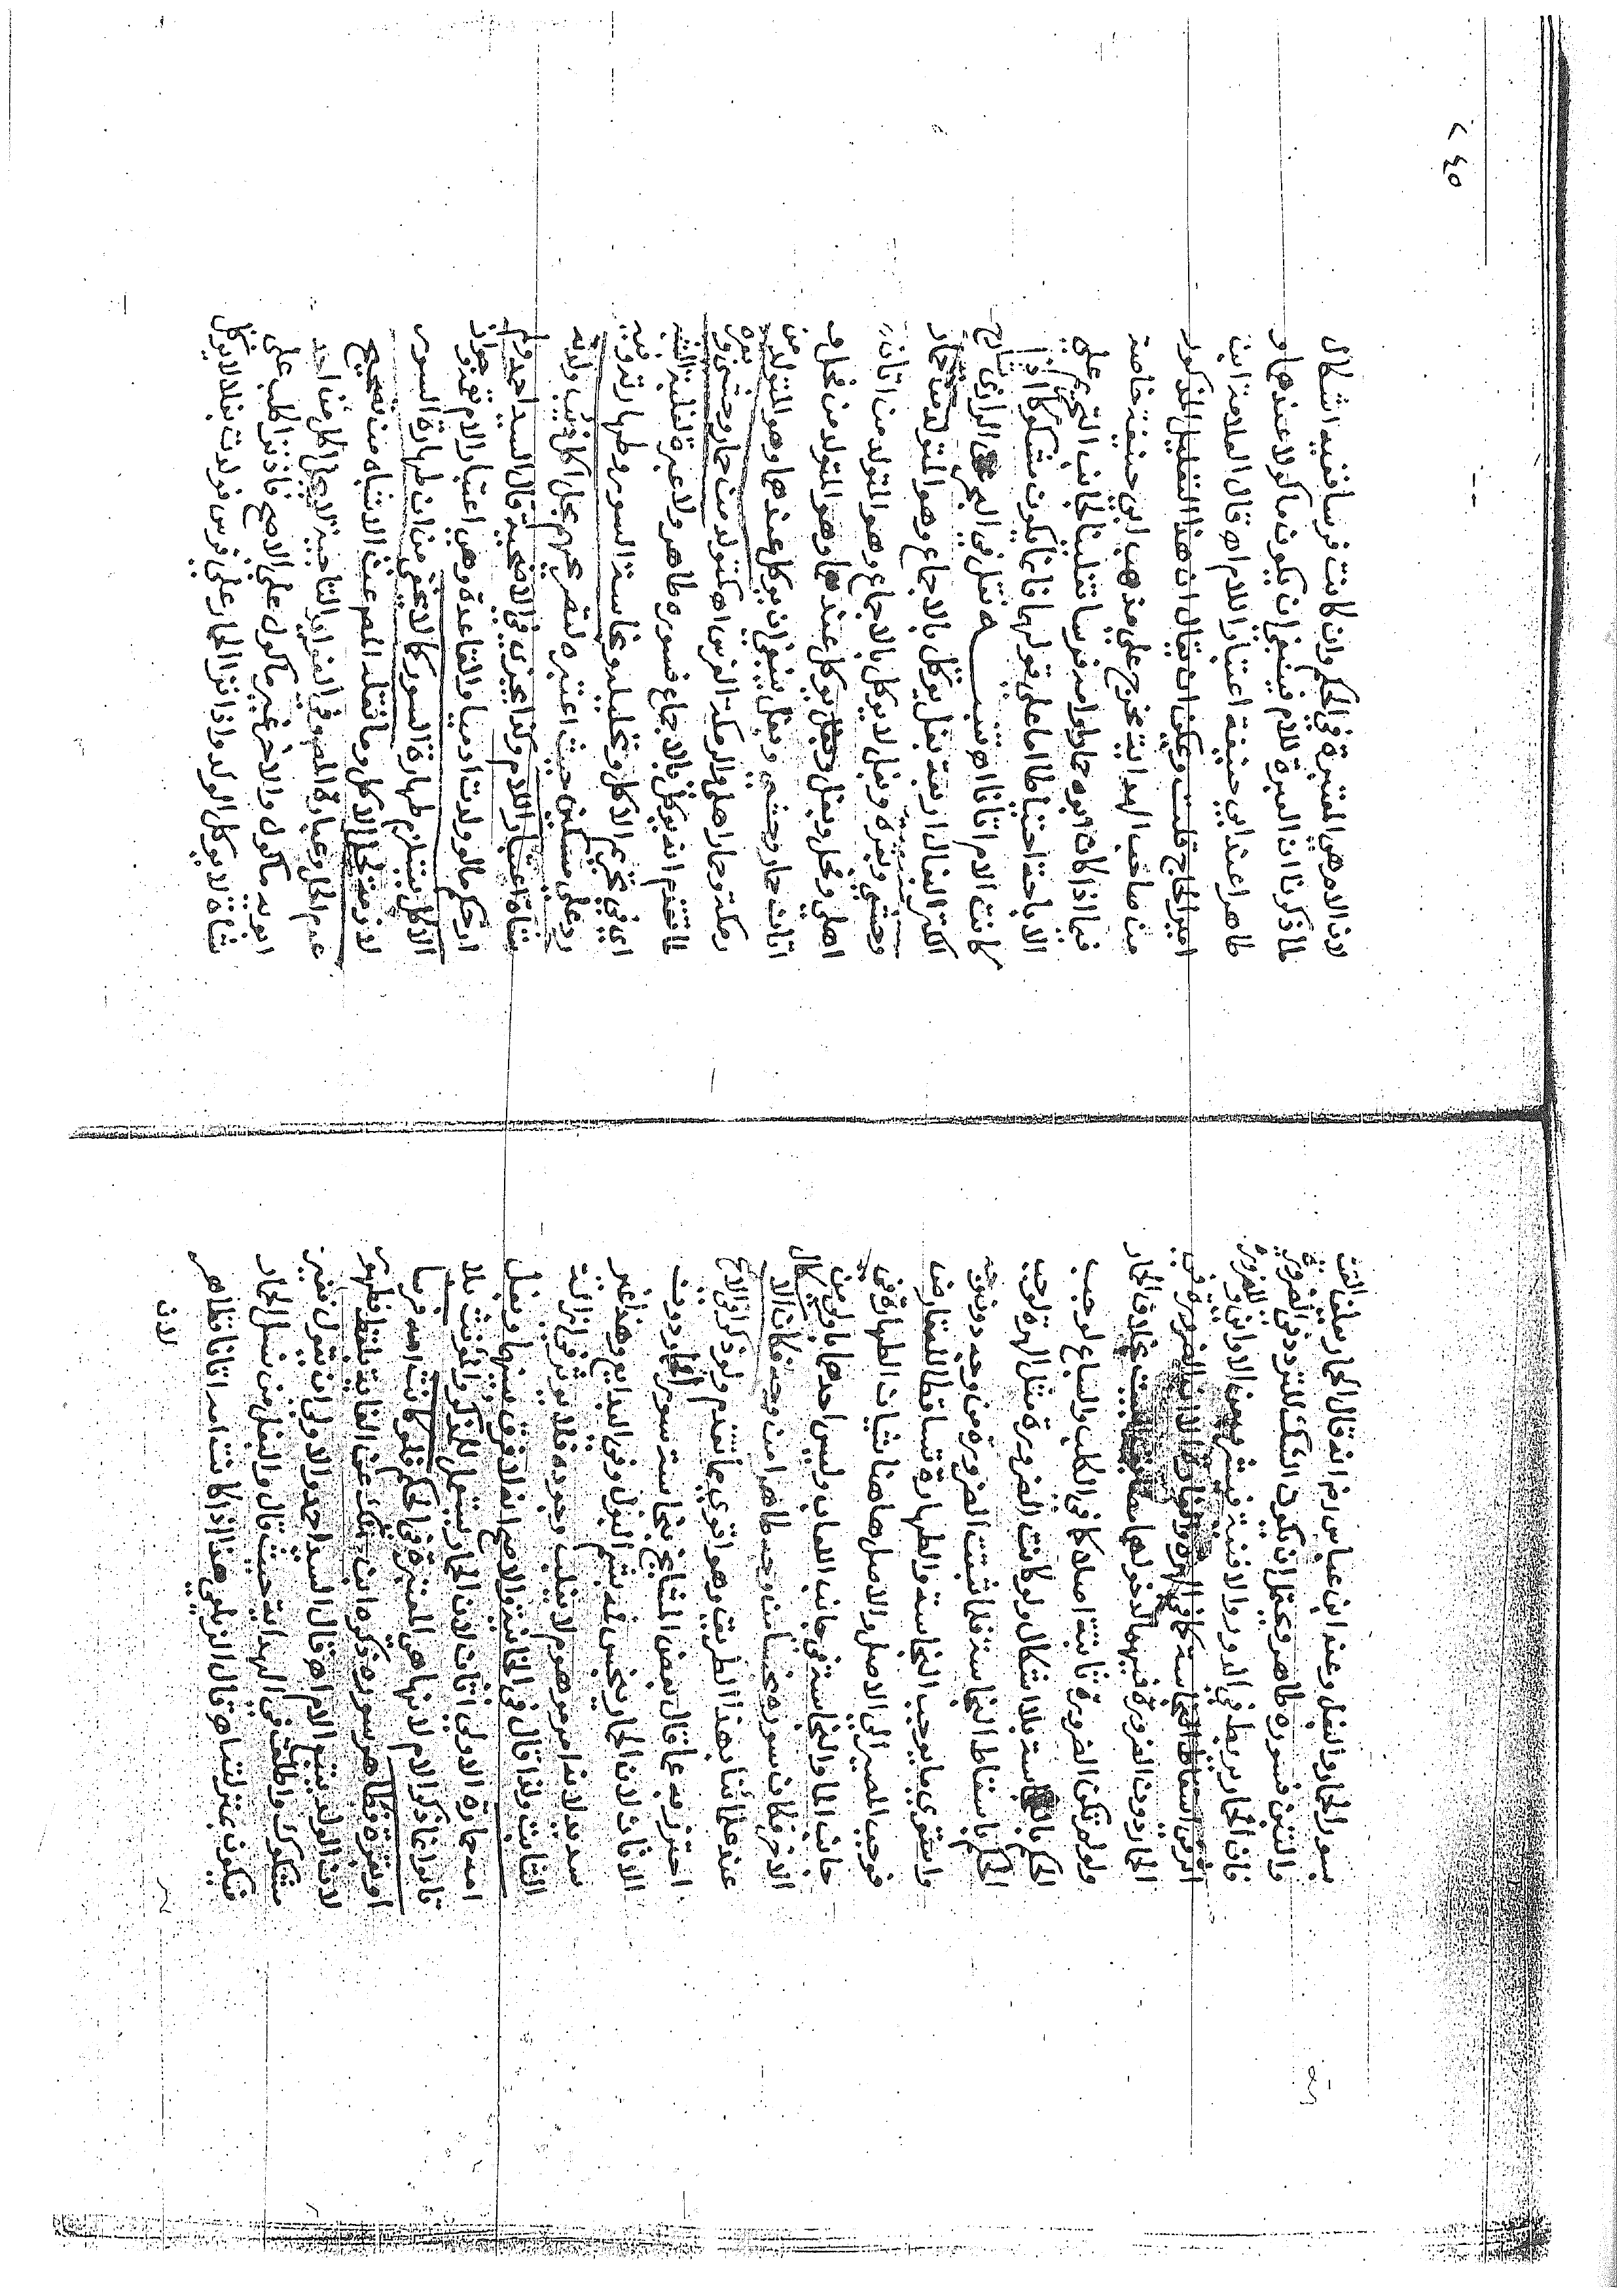 سور الحمار والبغل وعند ابن عباس رض انه قال الحمار يعلف القت
والتبن فسوره طاهر ويحتمل ان يكون الشك للتردد في الضرورة
فان الحمار يربط في الدور والافنية فيشرب من الاواني وللضرورة
اثر في اسقاط النجاسة كما في الهرة والفارة الا ان الضرورة في
الحمار دون الضرورة فيهما لدخولهما مضايق البيت بخلاف الحمار
ولو لم تكن الضرورة ثابتة اصلا كما في الكلب والسباع لوجب
الحكم بالنجاسة بلا اشكال ولو كانت الضرورة مثل الهرة لوجب
الحكم باسقاط النجاسة فلما ثبتت الضرورة من وجه دون وجه
واستوى ما يوجب النجاسة والطهارة تساقطا للتعارض
فوجب المصير الى الاصل والاصل هاهنا شيئان الطهارة في
جانب الماء والنجاسة في جانب اللعاب وليس احدهما باولى من
الاخر فكان سوره نجسا من وجه طاهرا من وجه فكان الاشكال
عند علمائنا بهذا الطريق وهو اقوى مما تقدم ولو ذكر او الاصح
احترز به عما قال بعض المشايخ نجاسة سور الحمار دون
الاتان لان الحمار ينجس فمه بشم البول وفي البدايع وهذا غير
سديد لانه امر موهوم لا يغلب وجوده فلا يوثر في ازالة
الثابت ولذا قال في الخانية والاصح انه لا فرق بينهما وبغل
امه حمارة الاولى اتان لان الحمار يشمل للذكر والمونث بلا
قالوا نما ذكر الام لانها هي المعتبرة في الحكم فلو كانت امه فرسا
او بقرة فطاهر سوره ذكره ابن ملك عن الغاية بلفظ فطهور
لان الولد يتبع الام اه قال السيد احمد والاولى ان يقول فغير
مشكوك واطلق في الهداية حيث قال والبغل من نسل الحمار
فيكون بمنزلته اه قال الزيلعي هذا اذا كانت امه اتانا فظاهر
لان
٢٤٥
لان الام هي المعتبرة في الحكم وان كانت فرسا ففيه اشكال
لما ذكرنا ان العبرة للام فينبغي ان يكون ماكولا عندهما و
طاهرا عند ابي حنيفة اعتبارا للام اه قال العلامة ابن
امير الحاج قلت ويمكن ان يقال ان هذا التعليل المذكور
من صاحب الهداية يخرج على مذهب ابي حنيفة خاصة
فيما اذا كان ابوه حمارا وامه فرسا تغليبا لجانب التحريم على
الاباحة احتياطا اما على قولهما فانما يكون مشكوكا اذا
كانت الام اتانا اه تنبيه نقل في البحر عن الرازي شارح
الكنز البغال اربعة بغل يوكل بالاجماع وهو المتولد من حمار
وحشي وبقرة وبغل لا يوكل بالاجماع وهو المتولد من اتان
اهلي وفحل وبغل يوكل عندهما وهو المتولد من فحل و
اتان حمار وحشي وبغل ينبغي ان يوكل عندهما وهو المتولد من
رمكة وحمار اهلي والرمكة الفرس اه متولد من حمار وحشي و بقرة
لما تقدم انه يوكل بالاجماع فسوره طاهر ولا عبرة لغلبة الشبه
اي في تحريم الاكل وتحليله ونجاسة السور وطهارته وبه
رد على مسكين حيث اعتبره ليقر بحل اكل ذئب ولدته
شاة اعتبارا للام وكذا يجزي في الاضحية قال السيد احمد وام
ار حكم ما لو ولدت ادميا والقاعدة وهي اعتبار الام تقتضي جواز
الاكل يستلزم طهارة السور كما لا يخفى من ان طهارة السور
لازمة لحل الاكل وما نقله المص عن الاشباه من تصحيح
عدم الحل وعبارة المص وفي الغرر التاجية لا يحل اكل من احد
ابويه ماكول والاخر غير ماكول على الاصح فاذا نزا كلب على
شاة لا يوكل الولد واذا نزا الحمار على فرس فولدت بغلا لا يوكل